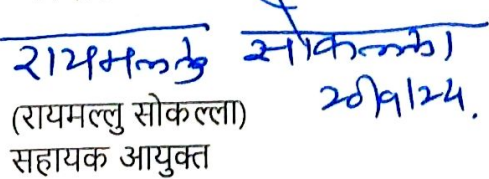 रायमल्लु सोकल्ला
20/9/24.
(रायमल्लु सोकल्ला)
सहायक आयुक्त